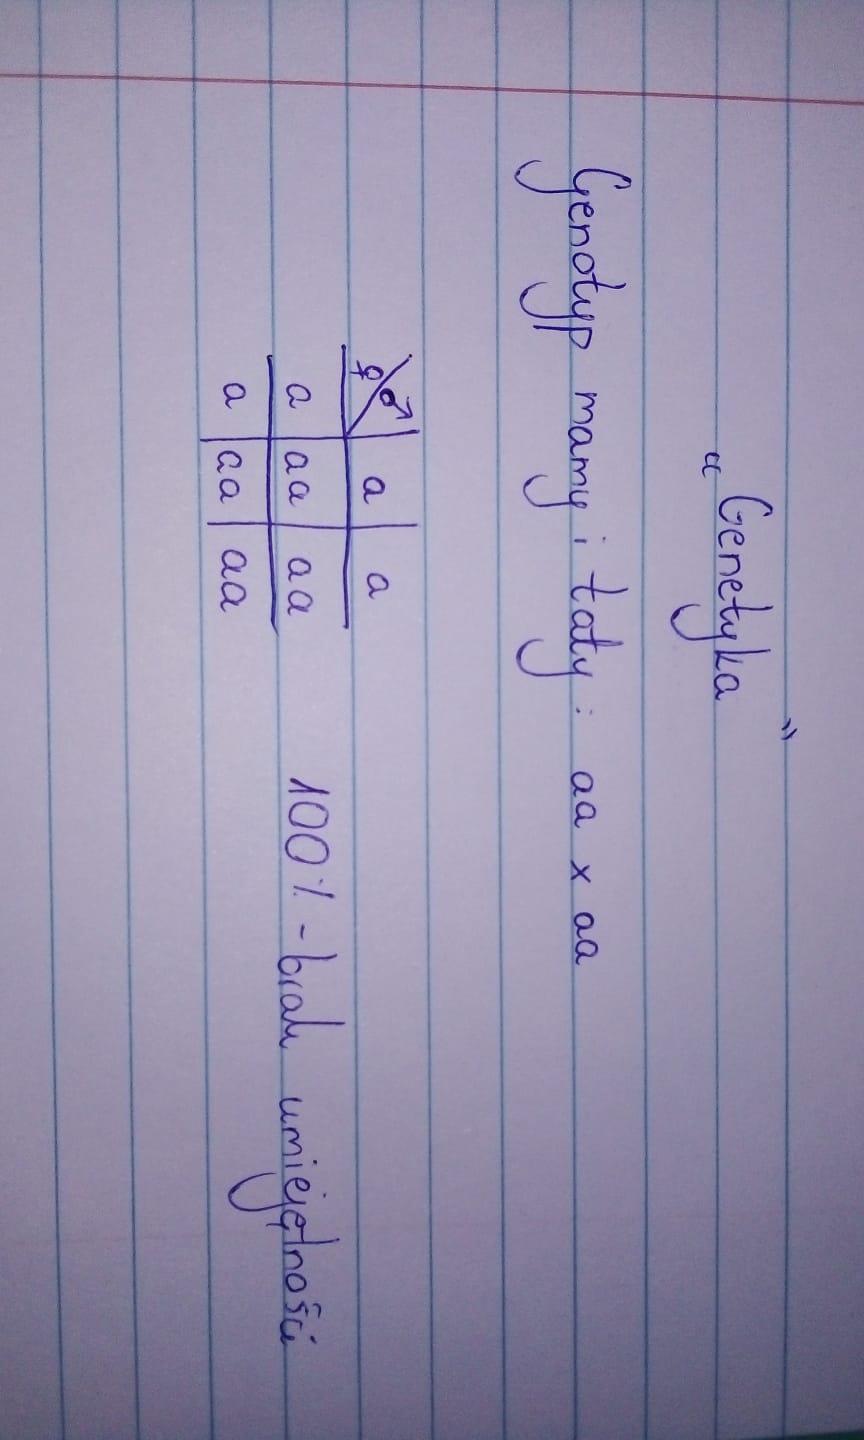 „Genetyka”
Genotyp mamy i taty: aa x aa
♀ ♂ a a
a aa aa 100% - brak umiejętności
a aa aa